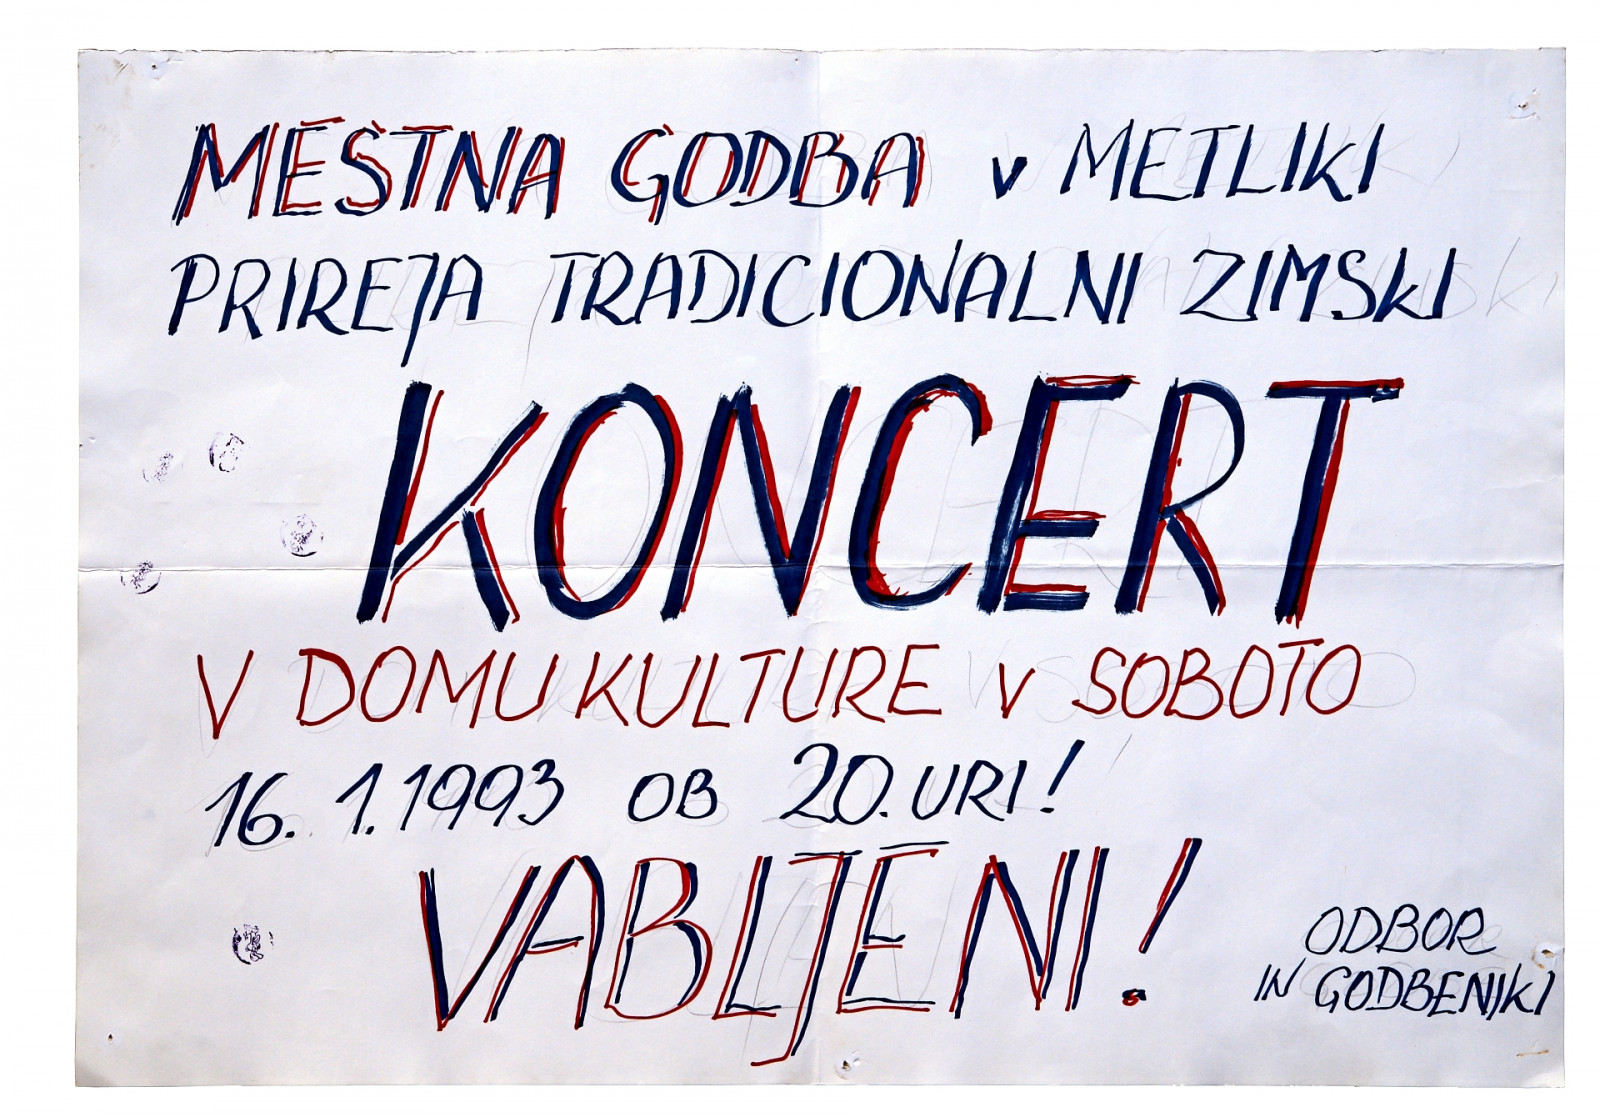 MESTNA GODBA v METLIKI
PRIREJA TRADICIONALNI ZIMSKI
KONCERT
V DOMU KULTURE V SOBOTO
16. 1. 1993 OB 20. URI!
VABLJENI!
ODBOR
IN GODBENIKI